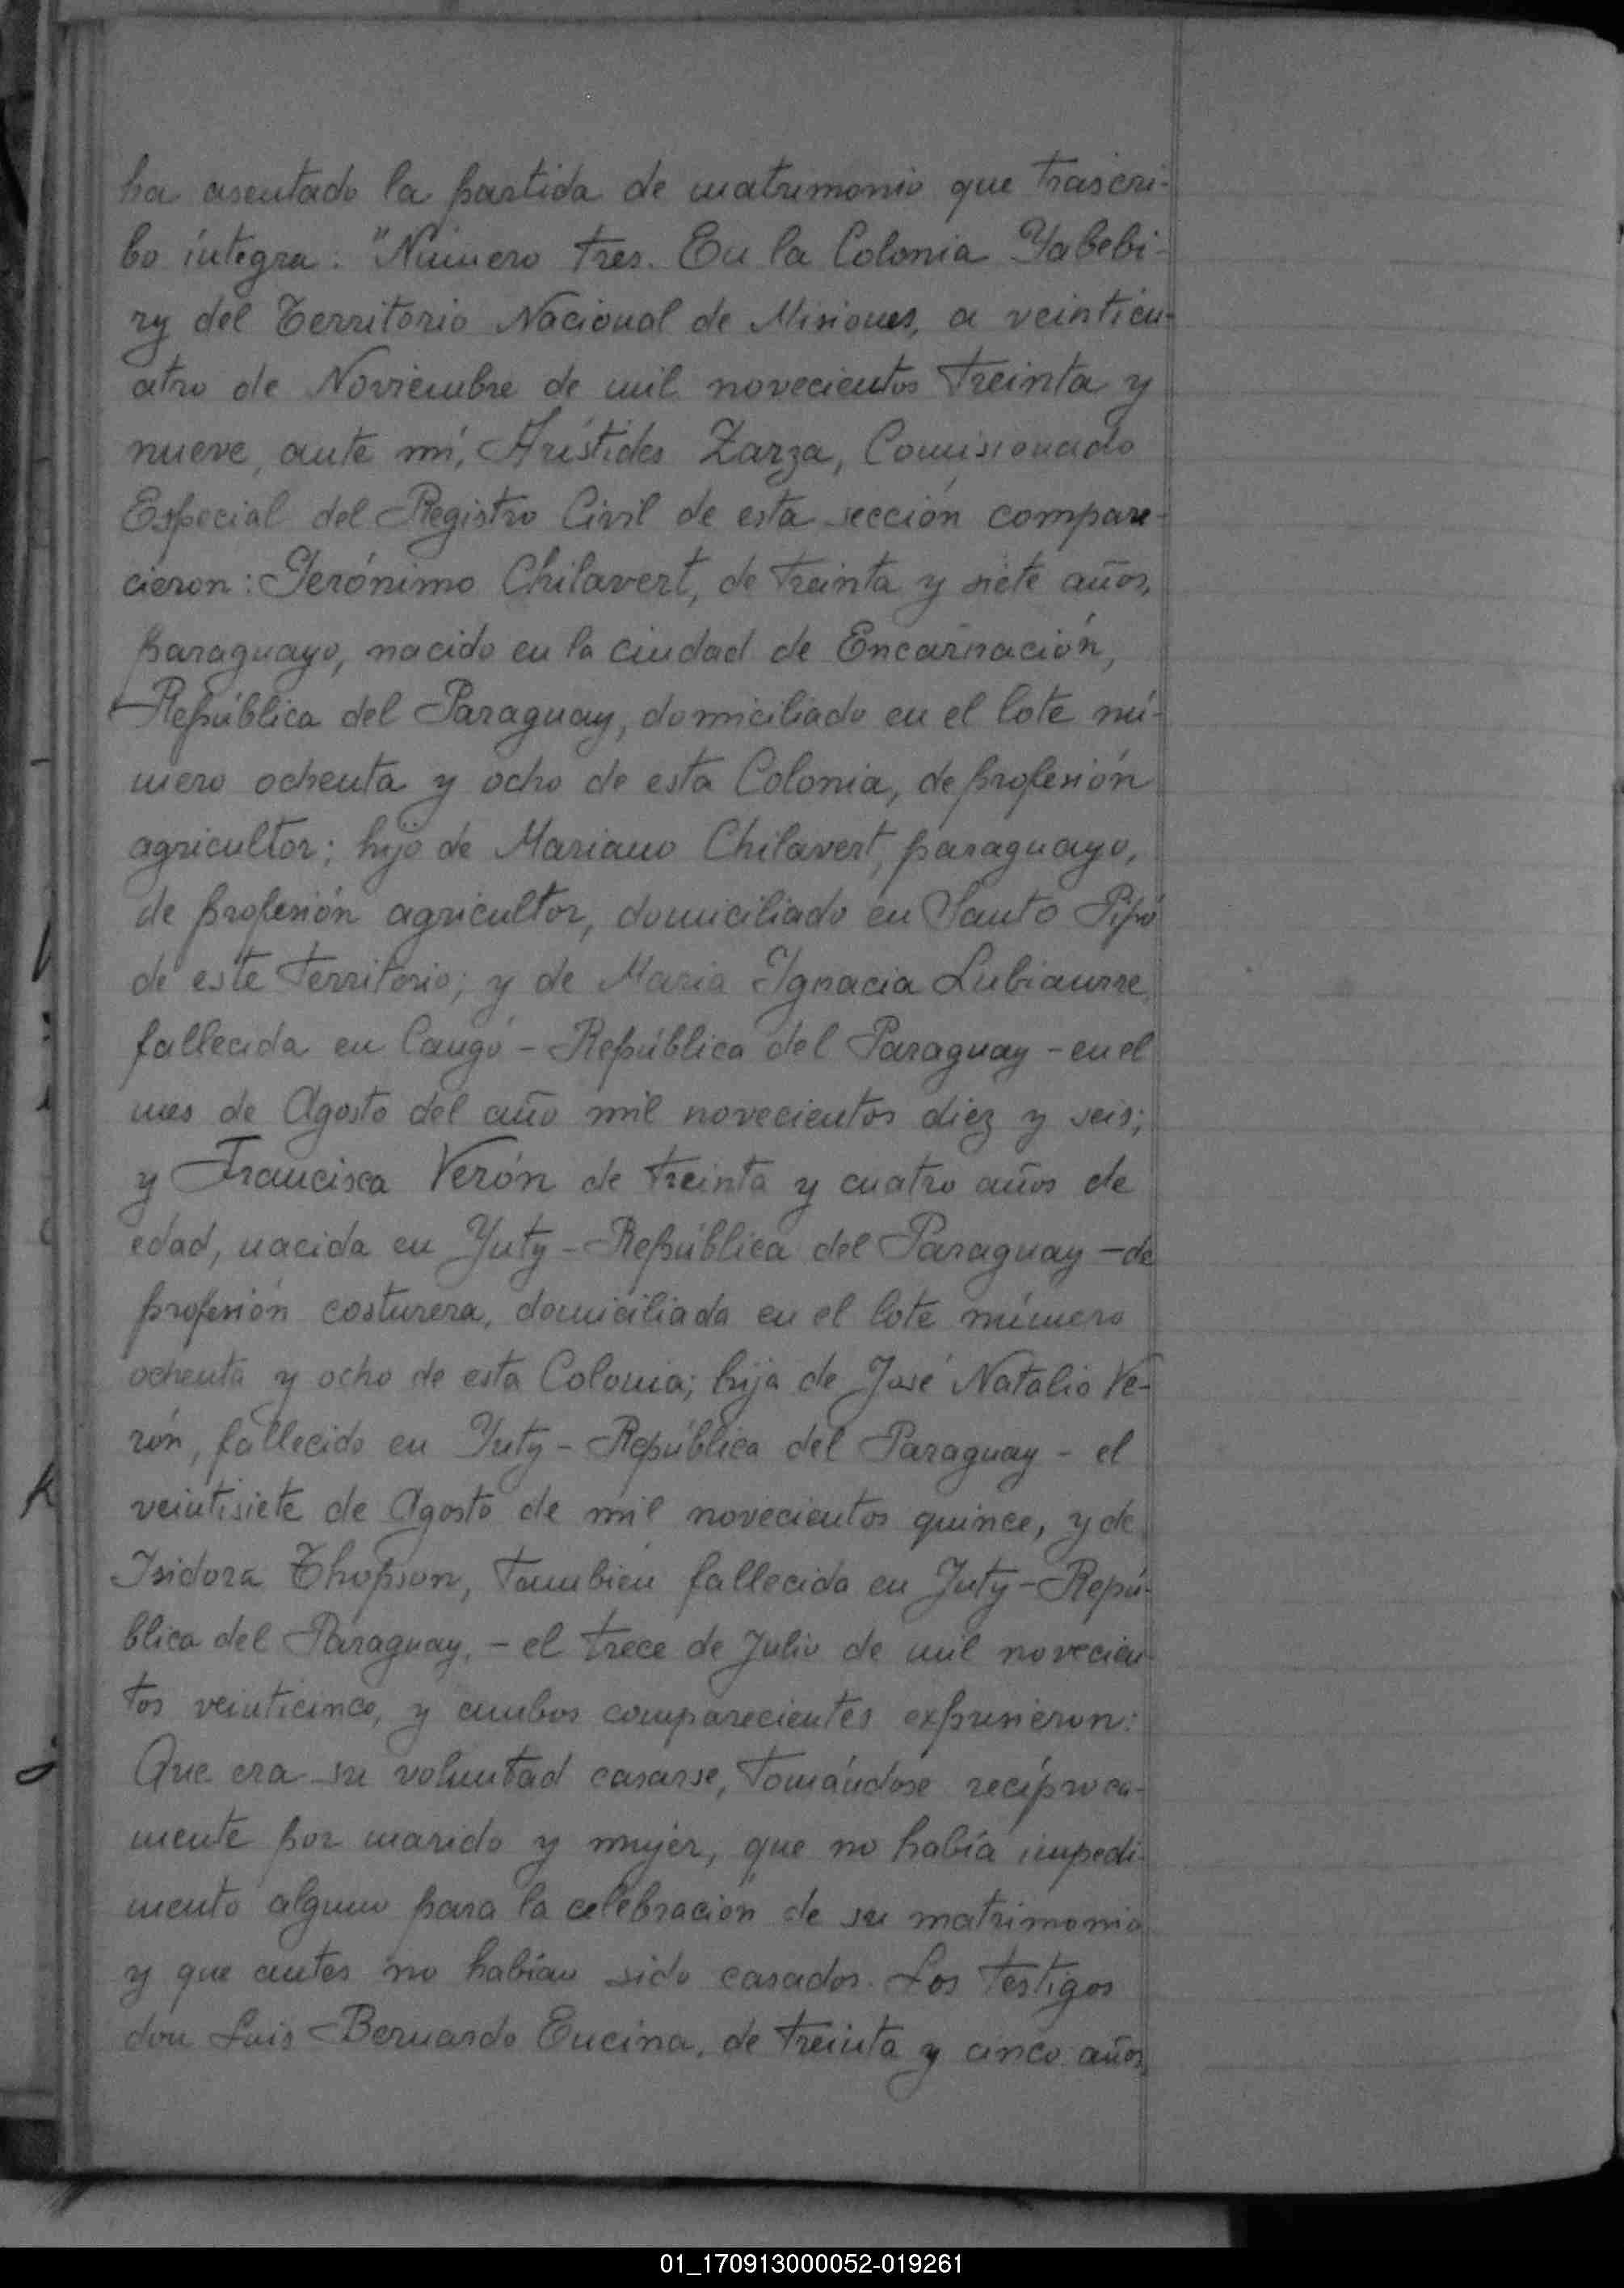 ha asentado la partida de matrimonio que trascri-
bo íntegra: "Número tres. En la Colonia Yabebi-
ry del Territorio Nacional de Misiones, a veinticu-
atro de Noviembre de mil novecientos treinta y
nueve, ante mí, Arístides Zarza, Comisionado
Especial del Registro Civil de esta sección compare-
cieron: Gerónimo Chilavert, de treinta y siete años,
paraguayo, nacido en la ciudad de Encarnación,
República del Paraguay, domiciliado en el lote nú-
mero ochenta y ocho de esta Colonia, de profesión
agricultor; hijo de Mariano Chilavert, paraguayo,
de profesión agricultor, domiciliado en Santo Pipó
de este Territorio; y de Maria Ygnacia Lubiaurre,
fallecida en Cangó - República del Paraguay - en el
mes de Agosto del año mil novecientos diez y seis;
y Francisca Verón de treinta y cuatro años de
edad, nacida en Yuty - República del Paraguay - de
profesión costurera, domiciliada en el lote número
ochenta y ocho de esta Colonia; hija de José Natalio Ve-
rón, fallecido en Yuty - República del Paraguay - el
veintisiete de Agosto de mil novecientos quince, y de
Isidora Thopson, también fallecida en Yuty - Repú-
blica del Paraguay, - el trece de Julio de mil novecien-
tos veinticinco, y ambos comparecientes expusieron:
Que era su voluntad casarse, tomándose recíproca-
mente por marido y mujer, que no había impedi-
mento alguno para la celebración de su matrimonio
y que antes no habían sido casados. Los testigos
don Luis Bernardo Encina, de treinta y cinco años,
01_170913000052-019261